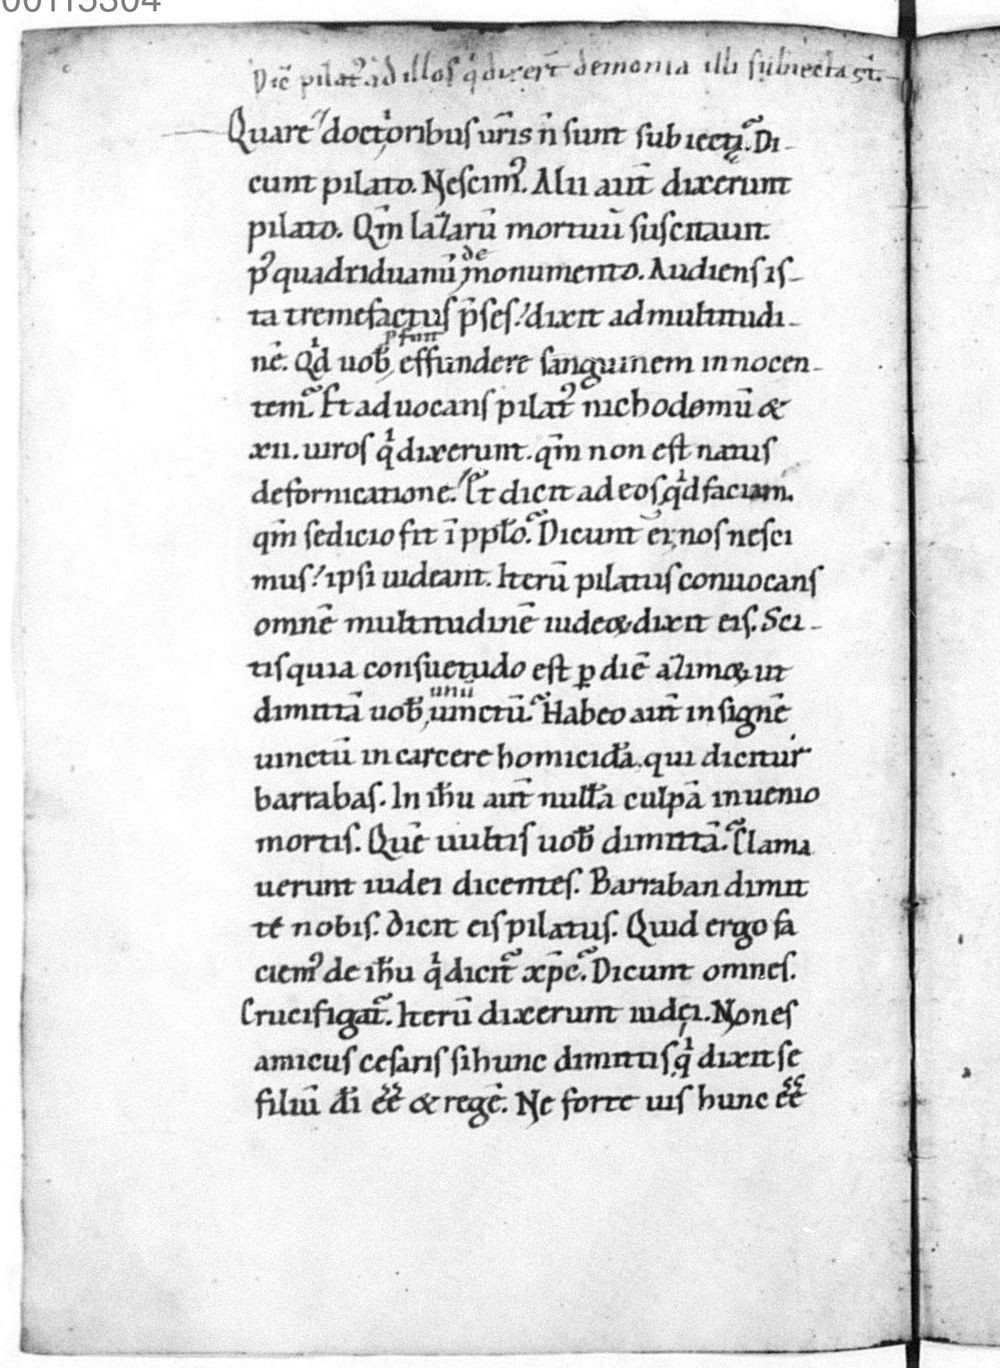 00115304
Dic̄ pilat᷒ ad illos q̇ dixer̄t demonia illi subiecta st̄.
Quare doctoribus ur̄is n̄ sunt subiecti. Di-
cunt pilato. Nescim᷒. Alii aut̄ dixerunt
pilato. Qm̄ lazarū mortuū suscitauit.
p᷒ quadriduanū de monumento. Audiens is-
ta tremefactus p̄ses. dixit ad multitudi-
nē. Qd uob̄ effundere sanguinem innocen-
tem. Et aduocans pilat᷒ nichodemū &
xii. uiros q̇ dixerunt. qm̄ non est natus
de fornicatione. Et dicit ad eos qd faciam.
qm̄ sedicio fit ī pp̄lo. Dicunt ei, nos nesci
mus. ipsi uideant. Iterū pilatus conuocans
omnē multitudinē iudeoꝝ dixit eis. Sci-
tis quia consuetudo est ꝑ diē azimoꝝ ut
dimittā uob̄ unū uinctū. Habeo aut̄ insignē
uinctū in carcere homicidā. qui dicitur
barrabas. In ih̄u aut̄ nullā culpā inuenio
mortis. Quē uultis uob̄ dimittā. Clama
uerunt iudei dicentes. Barraban dimit
te nobis. dicit eis pilatus. Quid ergo fa
ciem᷒ de ih̄u q̇ dicit᷑ xp̄c. Dicunt omnes.
Crucifigat᷑. Iterū dixerunt iudei. Non es
amicus cesaris si hunc dimittis q̇ dixit se
filiū di̅ ee̅ & regē. Ne forte uis hunc ee̅